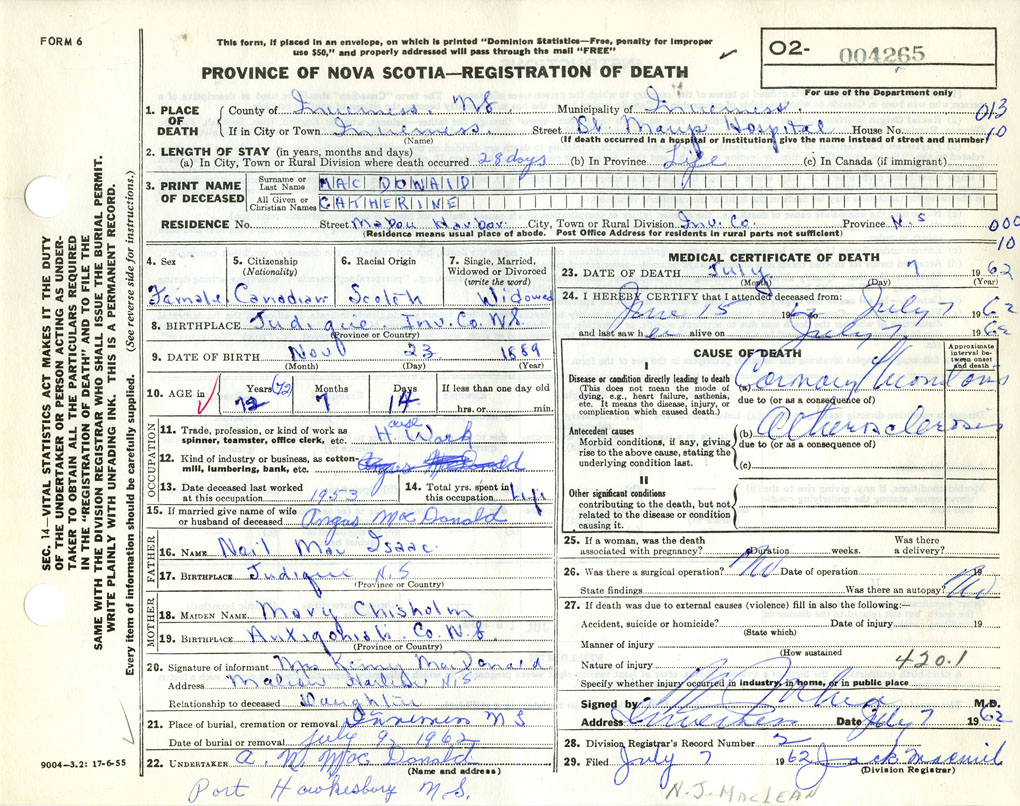 FORM 6
This form, if placed in an envelope, on which is printed "Dominion Statistics—Free, penalty for improper
use $50," and properly addressed will pass through the mail "FREE"
PROVINCE OF NOVA SCOTIA—REGISTRATION OF DEATH
O2- 004265
For use of the Department only
013
10
1. PLACE OF DEATH
County of Inverness. N S Municipality of Inverness.
If in City or Town Inverness. Street St. Marys Hospital House No.
(Name) (If death occurred in a hospital or institution, give the name instead of street and number)
2. LENGTH OF STAY (in years, months and days)
(a) In City, Town or Rural Division where death occurred 28 days (b) In Province Life (c) In Canada (if immigrant)
3. PRINT NAME OF DECEASED
Surname or Last Name MAC DONALD
All Given or Christian Names CATHERINE
RESIDENCE No. Street Mabou Harbor City, Town or Rural Division Inv. Co. Province N. S
(Residence means usual place of abode. Post Office Address for residents in rural parts not sufficient)
000
10
4. Sex Female
5. Citizenship (Nationality) Canadian
6. Racial Origin Scotch
7. Single, Married, Widowed or Divorced (write the word) Widowed
8. BIRTHPLACE Judique Inv. Co. N S.
(Province or Country)
9. DATE OF BIRTH Nov 23 1889
(Month) (Day) (Year)
10. AGE in Years 72 (72) Months 7 Days 14 If less than one day old
hrs. or min.
OCCUPATION
11. Trade, profession, or kind of work as spinner, teamster, office clerk, etc. House Work
12. Kind of industry or business, as cotton-mill, lumbering, bank, etc.
13. Date deceased last worked at this occupation 1953
14. Total yrs. spent in this occupation Life
15. If married give name of wife or husband of deceased Angus MacDonald
FATHER
16. NAME Neil Mac Isaac.
17. BIRTHPLACE Judique N. S
(Province or Country)
MOTHER
18. MAIDEN NAME Mary Chisholm
19. BIRTHPLACE Antigonish. Co. N. S
(Province or Country)
20. Signature of informant Mrs MacDonald
Address N. S
Relationship to deceased Daughter
21. Place of burial, cremation or removal N S
Date of burial or removal July 9, 1962
22. UNDERTAKER A. M MacDonald
(Name and address)
Port Hawkesbury N. S.
MEDICAL CERTIFICATE OF DEATH
23. DATE OF DEATH July 7 1962
(Month) (Day) (Year)
24. I HEREBY CERTIFY that I attended deceased from:
June 15 19 to July 7 1962
and last saw her alive on July 7 1962
CAUSE OF DEATH
Approximate interval between onset and death
I
Disease or condition directly leading to death
(This does not mean the mode of dying, e.g., heart failure, asthenia, etc. It means the disease, injury, or complication which caused death.)
(a) Coronary Thrombosis
due to (or as a consequence of)
Antecedent causes
Morbid conditions, if any, giving rise to the above cause, stating the underlying condition last.
(b) Atherosclerosis
due to (or as a consequence of)
(c)
II
Other significant conditions
contributing to the death, but not related to the disease or condition causing it.
25. If a woman, was the death associated with pregnancy? Duration weeks. Was there a delivery?
26. Was there a surgical operation? No Date of operation 19
State findings Was there an autopsy? No
27. If death was due to external causes (violence) fill in also the following:—
Accident, suicide or homicide? Date of injury 19
(State which)
Manner of injury
(How sustained
Nature of injury 420.1
Specify whether injury occurred in industry, in home, or in public place
Signed by M.D.
Address Inverness Date July 7 1962
28. Division Registrar's Record Number 2
29. Filed July 7 1962 Jack Macneil
(Division Registrar)
N. J. MACLEAN
SEC. 14—VITAL STATISTICS ACT MAKES IT THE DUTY
OF THE UNDERTAKER OR PERSON ACTING AS UNDER-
TAKER TO OBTAIN ALL THE PARTICULARS REQUIRED
IN THE "REGISTRATION OF DEATH" AND TO FILE THE
SAME WITH THE DIVISION REGISTRAR WHO SHALL ISSUE THE BURIAL PERMIT.
WRITE PLAINLY WITH UNFADING INK. THIS IS A PERMANENT RECORD.
Every item of information should be carefully supplied. (See reverse side for instructions.)
9004-3.2: 17-6-55